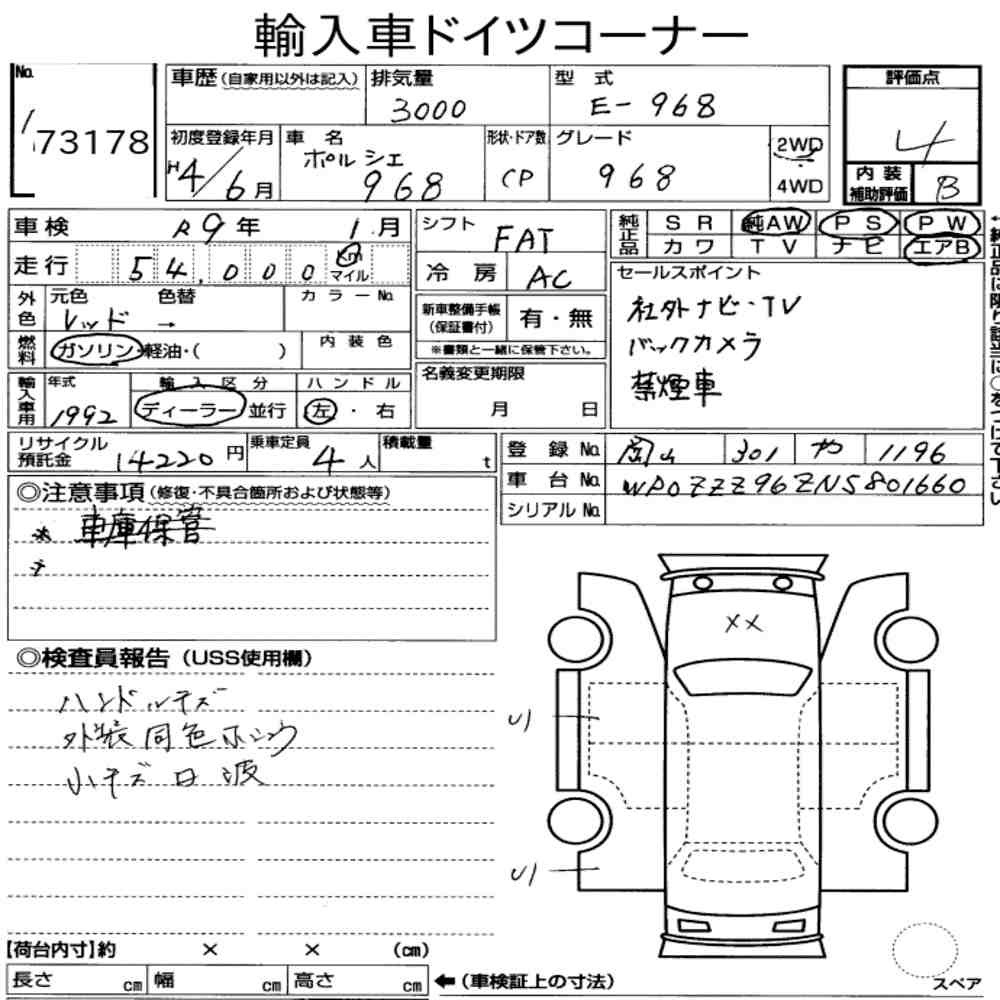 輸入車ドイツコーナー
No. 73178
車歴(自家用以外は記入) 排気量 3000 型式 E-968 評価点 4
初度登録年月 H4/6月 車名 ポルシェ 968 形状・ドア数 CP グレード 968 2WD 4WD 内装補助評価 B
車検 R9年 1月 シフト FAT 純正品 SR 純AW PS PW
カワ TV ナビ エアB
走行 54,000 km マイル 冷房 AC
←純正品に限り該当に○をつけて下さい
セールスポイント
社外ナビ・TV
バックカメラ
禁煙車
外色 元色 レッド 色替 → カラーNo.
新車整備手帳(保証書付) 有・無
※書類と一緒に保管下さい。
燃料 ガソリン・軽油・( ) 内装色
名義変更期限 月 日
輸入車用 年式 1992 輸入区分 ディーラー 並行 ハンドル 左・右
リサイクル預託金 14220円 乗車定員 4人 積載量 t
登録No. 岡山 301 や 1196
車台No. WP0ZZZ96ZNS801660
シリアルNo.
◎注意事項(修復・不具合箇所および状態等)
* 車庫保管
◎検査員報告(USS使用欄)
ハンドルキズ
外装同色ホシュウ
小キズ 波
XX
U1
U1
【荷台内寸】約 × × (cm)
長さ cm 幅 cm 高さ cm ←(車検証上の寸法)
スペア